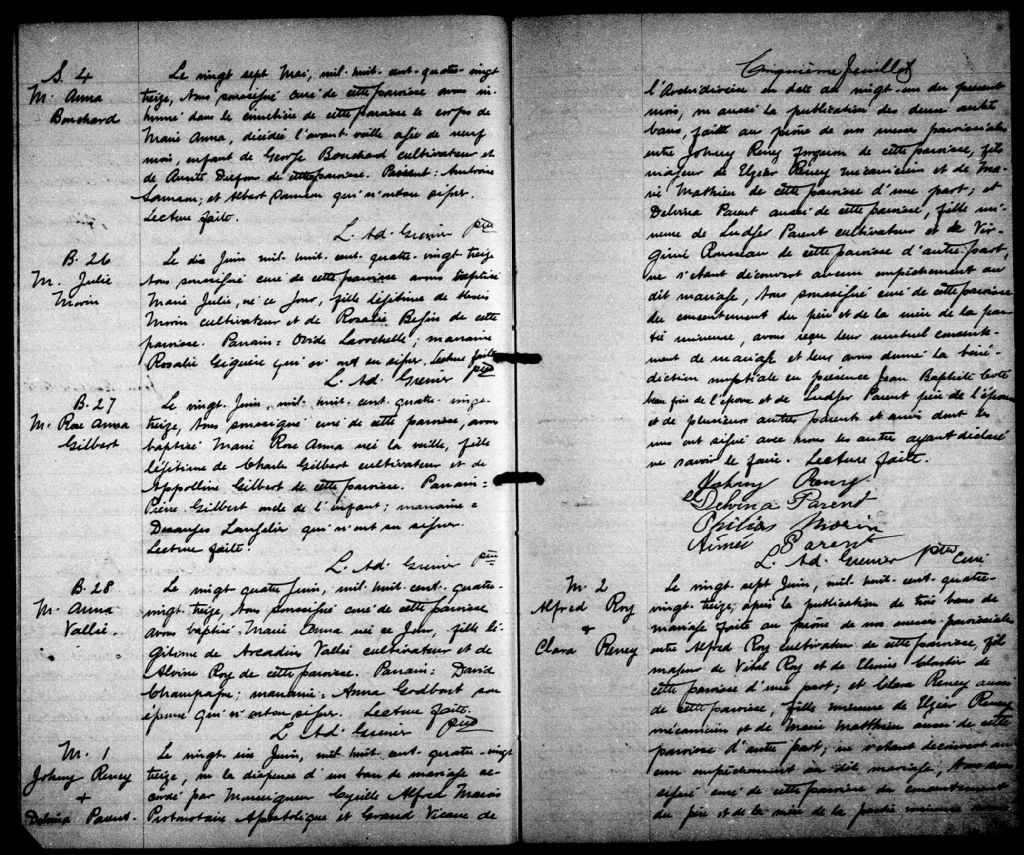 S. 4
M. Anna
Bouchard
Le vingt sept Mai, mil-huit-cent-quatre-vingt
treize, Nous soussigné curé de cette paroisse avons in-
humé dans le cimetière de cette paroisse le corps de
Marie Anna, décédée l'avant veille agée de neuf
mois, enfant de George Bouchard cultivateur et
de cette paroisse. Présent: Antoine
et Albert qui n'ont su signer.
Lecture faite.
L. Ad. Grenier Ptre
B. 26
M. Julie
Morin
Le dix Juin mil-huit-cent-quatre-vingt treize
Nous soussigné curé de cette paroisse avons baptisé
Marie Julie, né ce jour, fille légitime de
Morin cultivateur et de Rosalie Bégin de cette
paroisse. Parrain: Ovide Larochelle; marraine
Rosalie Giguère qui n'ont su signer. Lecture faite
L. Ad. Grenier Ptre
B. 27
M. Rose Anna
Gilbert
Le vingt Juin, mil-huit-cent-quatre-vingt-
treize, Nous soussigné curé de cette paroisse, avons
baptisé Marie Rose Anna née la veille, fille
légitime de Charle Gilbert cultivateur et de
Appolline Gilbert de cette paroisse. Parrain:
Pierre Gilbert oncle de l'enfant; marraine:
Desanges Langelier qui n'ont su signer.
Lecture faite.
L. Ad. Grenier Ptre
B. 28
M. Anna
Vallée.
Le vingt quatre Juin, mil-huit-cent-quatre-
vingt-treize, Nous soussigné curé de cette paroisse,
avons baptisé Marie Anna née ce jour, fille lé-
gitime de Arcadius Vallée cultivateur et de
Alvine Roy de cette paroisse. Parrain: David
Champagne; marraine: Anna Godbout son
épouse qui n'ont su signer. Lecture faite.
L. Ad. Grenier Ptre
M. 1
Johnny Remey
+
Delvina Parent.
Le vingt six Juin, mil-huit-cent-quatre-vingt
treize, vu la dispense d'un ban de mariage ac-
cordé par Monseigneur Cyrille Alfred Marois
Protonotaire Apostolique et Grand Vicaire de
Cinquième feuillet
l'Archidiocèse en date du vingt-un du présent
mois, vu aussi la publication des deux autres
bans, faite au prône de nos messes paroissiales
entre Johnny Remey forgeron de cette paroisse, fils
majeur de Elzéar Remey mécanicien et de Ma-
rie Mathieu de cette paroisse d'une part; et
Delvina Parent aussi de cette paroisse, fille mi-
neure de Ludger Parent cultivateur et de Vir-
ginie Rousseau de cette paroisse d'autre part,
ne s'étant découvert aucun empêchement au
dit mariage, Nous soussigné curé de cette paroisse
du consentement du père et de la mère de la par-
tie mineure, avons reçu leur mutuel consente-
ment de mariage et leur avons donné la béné-
diction nuptiale en présence Jean Baptiste
beau frère de l'époux et de Ludger Parent père de l'épouse
et de plusieurs autres parents et amis dont les
uns ont signé avec nous les autres ayant déclaré
ne savoir le faire. Lecture faite.
Johnny Remey
Delvina Parent
Philias Morin
Aimée Parent
L. Ad. Grenier Ptre Curé
M. 2
Alfred Roy
+
Clara Remey
Le vingt sept Juin, mil-huit-cent-quatre-
vingt-treize, après la publication de trois bans de
mariage faite au prône de nos messes paroissiales
entre Alfred Roy cultivateur de cette paroisse, fils
majeur de Vital Roy et de Cloutier de
cette paroisse d'une part; et Clara Remey aussi
de cette paroisse, fille mineure de Elzéar Remey
mécanicien et de Marie Matthieu aussi de cette
paroisse d'autre part; ne s'étant découvert au-
cun empêchement au dit mariage, Nous sous-
signé curé de cette paroisse du consentement
du père et de la mère de la partie mineure